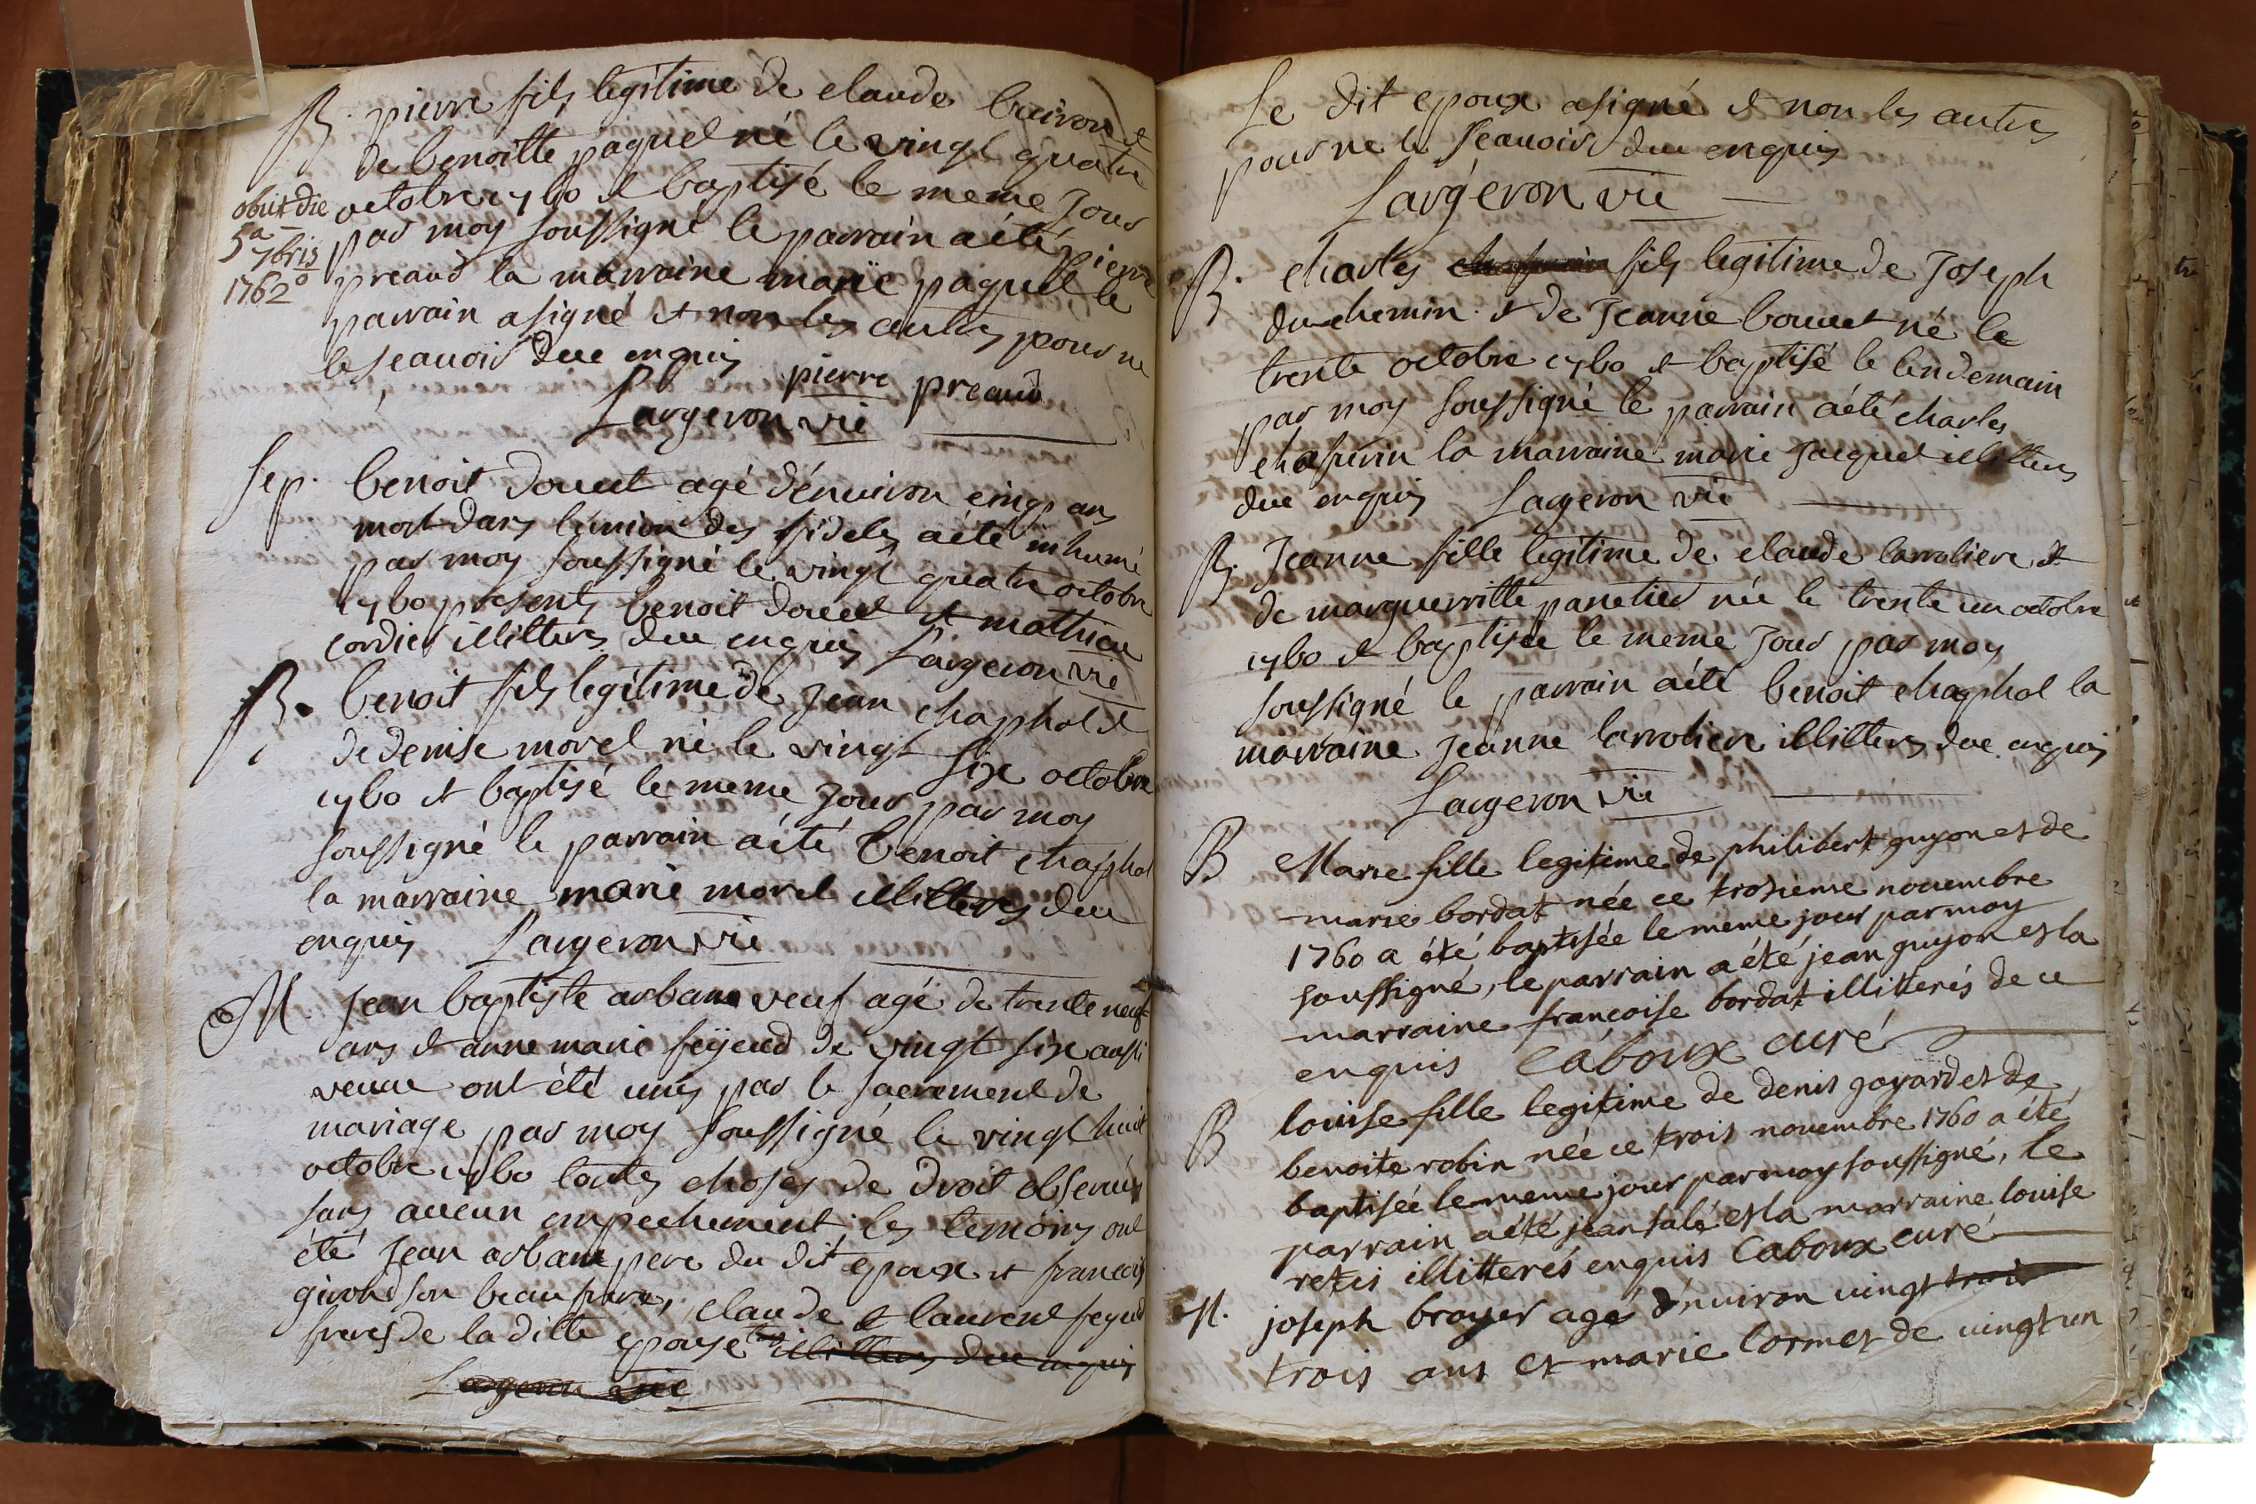 B. pierre fils legitime de claude buiron et
de benoitte paquel né le vingt quatre
octobre 1760 et baptisé le meme jour
par moy soussigné le parrain a été pierre
preaud la marraine marie paquel le
parrain a signé et non les autres pour ne
le scavoir due enquis pierre preaud
Largeron vic
obiit die
5a 7bris
1762°
Sep. benoit doucet agé d'environ cinq ans
mort dans l'union des fideles a été inhumé
par moy soussigné le vingt quatre octobre
1760 presents benoit doucet et mathieu
cordier illitters due enquis Largeron vic
B. benoit fils legitime de jean chaphol et
de denise morel né le vingt six octobre
1760 et baptisé le meme jour par moy
soussigné le parrain a été benoit chaphol
la marraine marie morel illitters due
enquis Largeron vic
M jean baptiste arbane veuf agé de trente neuf
ans et anne marie feyeud de vingt six aussi
veuve ont été unis par le sacrement de
mariage par moy soussigné le vingt huit
octobre 1760 toutes choses de droit observées
sans aucun empechement les temoins ont
été jean arbane pere du dit epoux et francois
girond son beau frere, claude et laurent feyeud
freres de la ditte epouse illitters due enquis
Largeron vic
Le dit epoux a signé et non les autres
pour ne le scavoir due enquis
Largeron vic
B. charles fils legitime de joseph
duchemin et de jeanne bouvet né le
trente octobre 1760 et baptisé le lendemain
par moy soussigné le parrain a été charles
chassurin la marraine marie jacquet illitters
due enquis Largeron vic
B. jeanne fille legitime de claude larroliere et
de marguerritte panetier née le trente un octobre
1760 et baptisée le meme jour par moy
soussigné le parrain a été benoit chaphol la
marraine jeanne larroliere illitters due enquis
Largeron vic
B Marie fille legitime de philibert guyon et de
marie bordat née ce trosieme novembre
1760 a été baptisée le meme jour par moy
soussigné, le parrain a été jean guyon et la
marraine francoise bordat illitterés de ce
enquis Laboux curé
B louise fille legitime de denis goyard et de
benoite robin née ce trois novembre 1760 a été
baptisée le meme jour par moy soussigné, le
parrain a été jean salé et la marraine louise
retis illitterés enquis Laboux curé
M. joseph broyer agé d'environ vingt trois
trois ans et marie cormet de vingt un